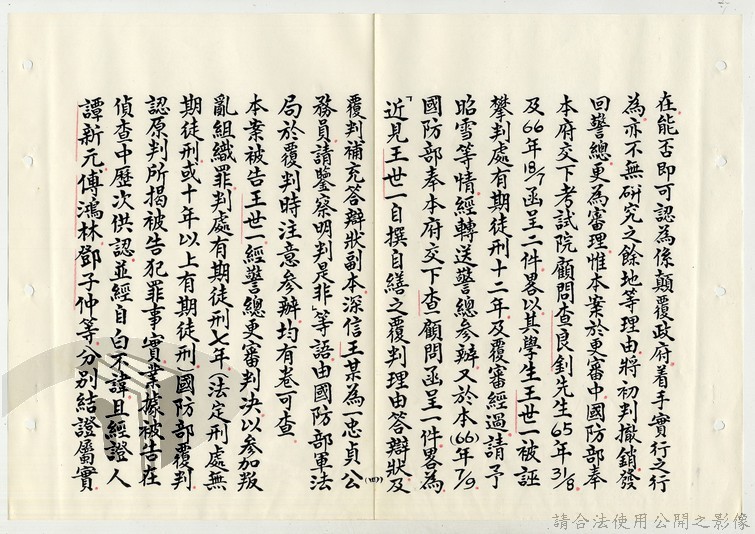 在能否即可認為係顛覆政府着手實行之行
為亦不無研究之餘地等理由將初判撤銷發
回警總更為審理惟本案於更審中國防部奉
本府交下考試院顧問查良釗先生65年31/8
及66年18/7函呈二件畧以其學生王世一被誣
攀判處有期徒刑十二年及覆審經過請予
昭雪等情經轉送警總參辦又於本(66)年7/9
國防部奉本府交下查顧問函呈一件畧為
「近見王世一自撰自繕之覆判理由答辯狀及
(四)
覆判補充答辯狀副本深信王某為一忠貞公
務員請鑒察明判是非」等語由國防部軍法
局於覆判時注意參辦均有卷可查
本案被告王世一經警總更審判決以參加叛
亂組織罪判處有期徒刑七年(法定刑處無
期徒刑或十年以上有期徒刑)國防部覆判
認原判所揭被告犯罪事實業據被告在
偵查中歷次供認並經自白不諱且經證人
譚新元傅鴻林鄧子仲等分別結證屬實
請合法使用公開之影像